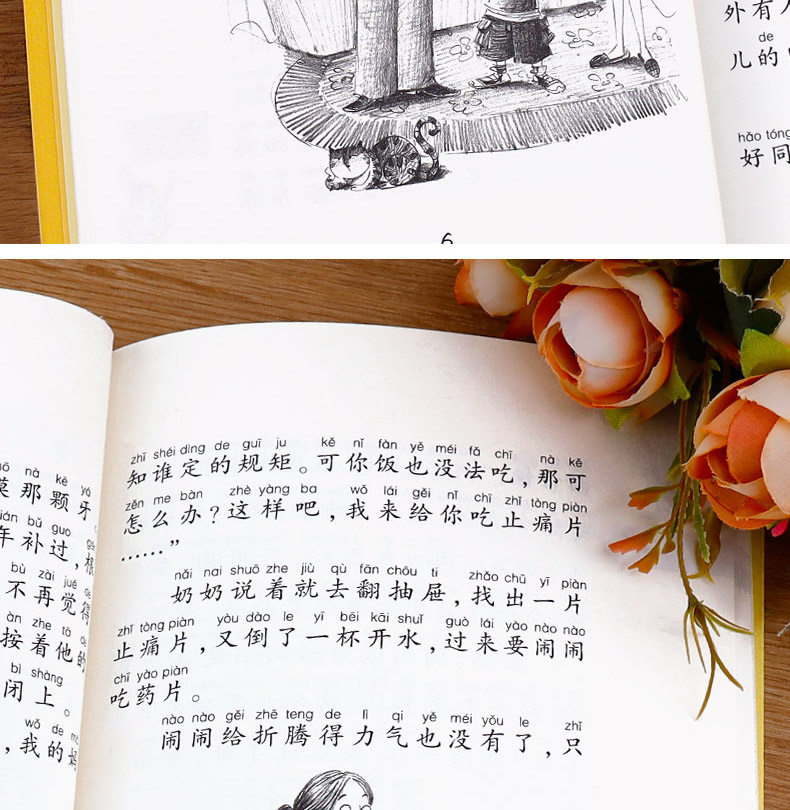 外有
de
儿的
hǎo tóng
好同
6
nà kē yá
那颗牙。
bǔ guo
年补过，根
bù zài jué de
不再觉得
àn zhe tā de
按着他的
bì shàng
闭上。
wǒ de
，我的好
zhī shéi dìng de guī ju kě nǐ fàn yě méi fǎ chī nà kě
知谁定的规矩。可你饭也没法吃，那可
zěn me bàn zhè yàng ba wǒ lái gěi nǐ chī zhǐ tòng piàn
怎么办？这样吧，我来给你吃止痛片
……”
nǎi nai shuō zhe jiù qù fān chōu ti zhǎo chū yī piàn
奶奶说着就去翻抽屉，找出一片
zhǐ tòng piàn yòu dào le yī bēi kāi shuǐ guò lái yào nào nào
止痛片，又倒了一杯开水，过来要闹闹
chī yào piàn
吃药片。
nào nào gěi zhē teng de lì qi yě méi yǒu le zhǐ
闹闹给折腾得力气也没有了，只